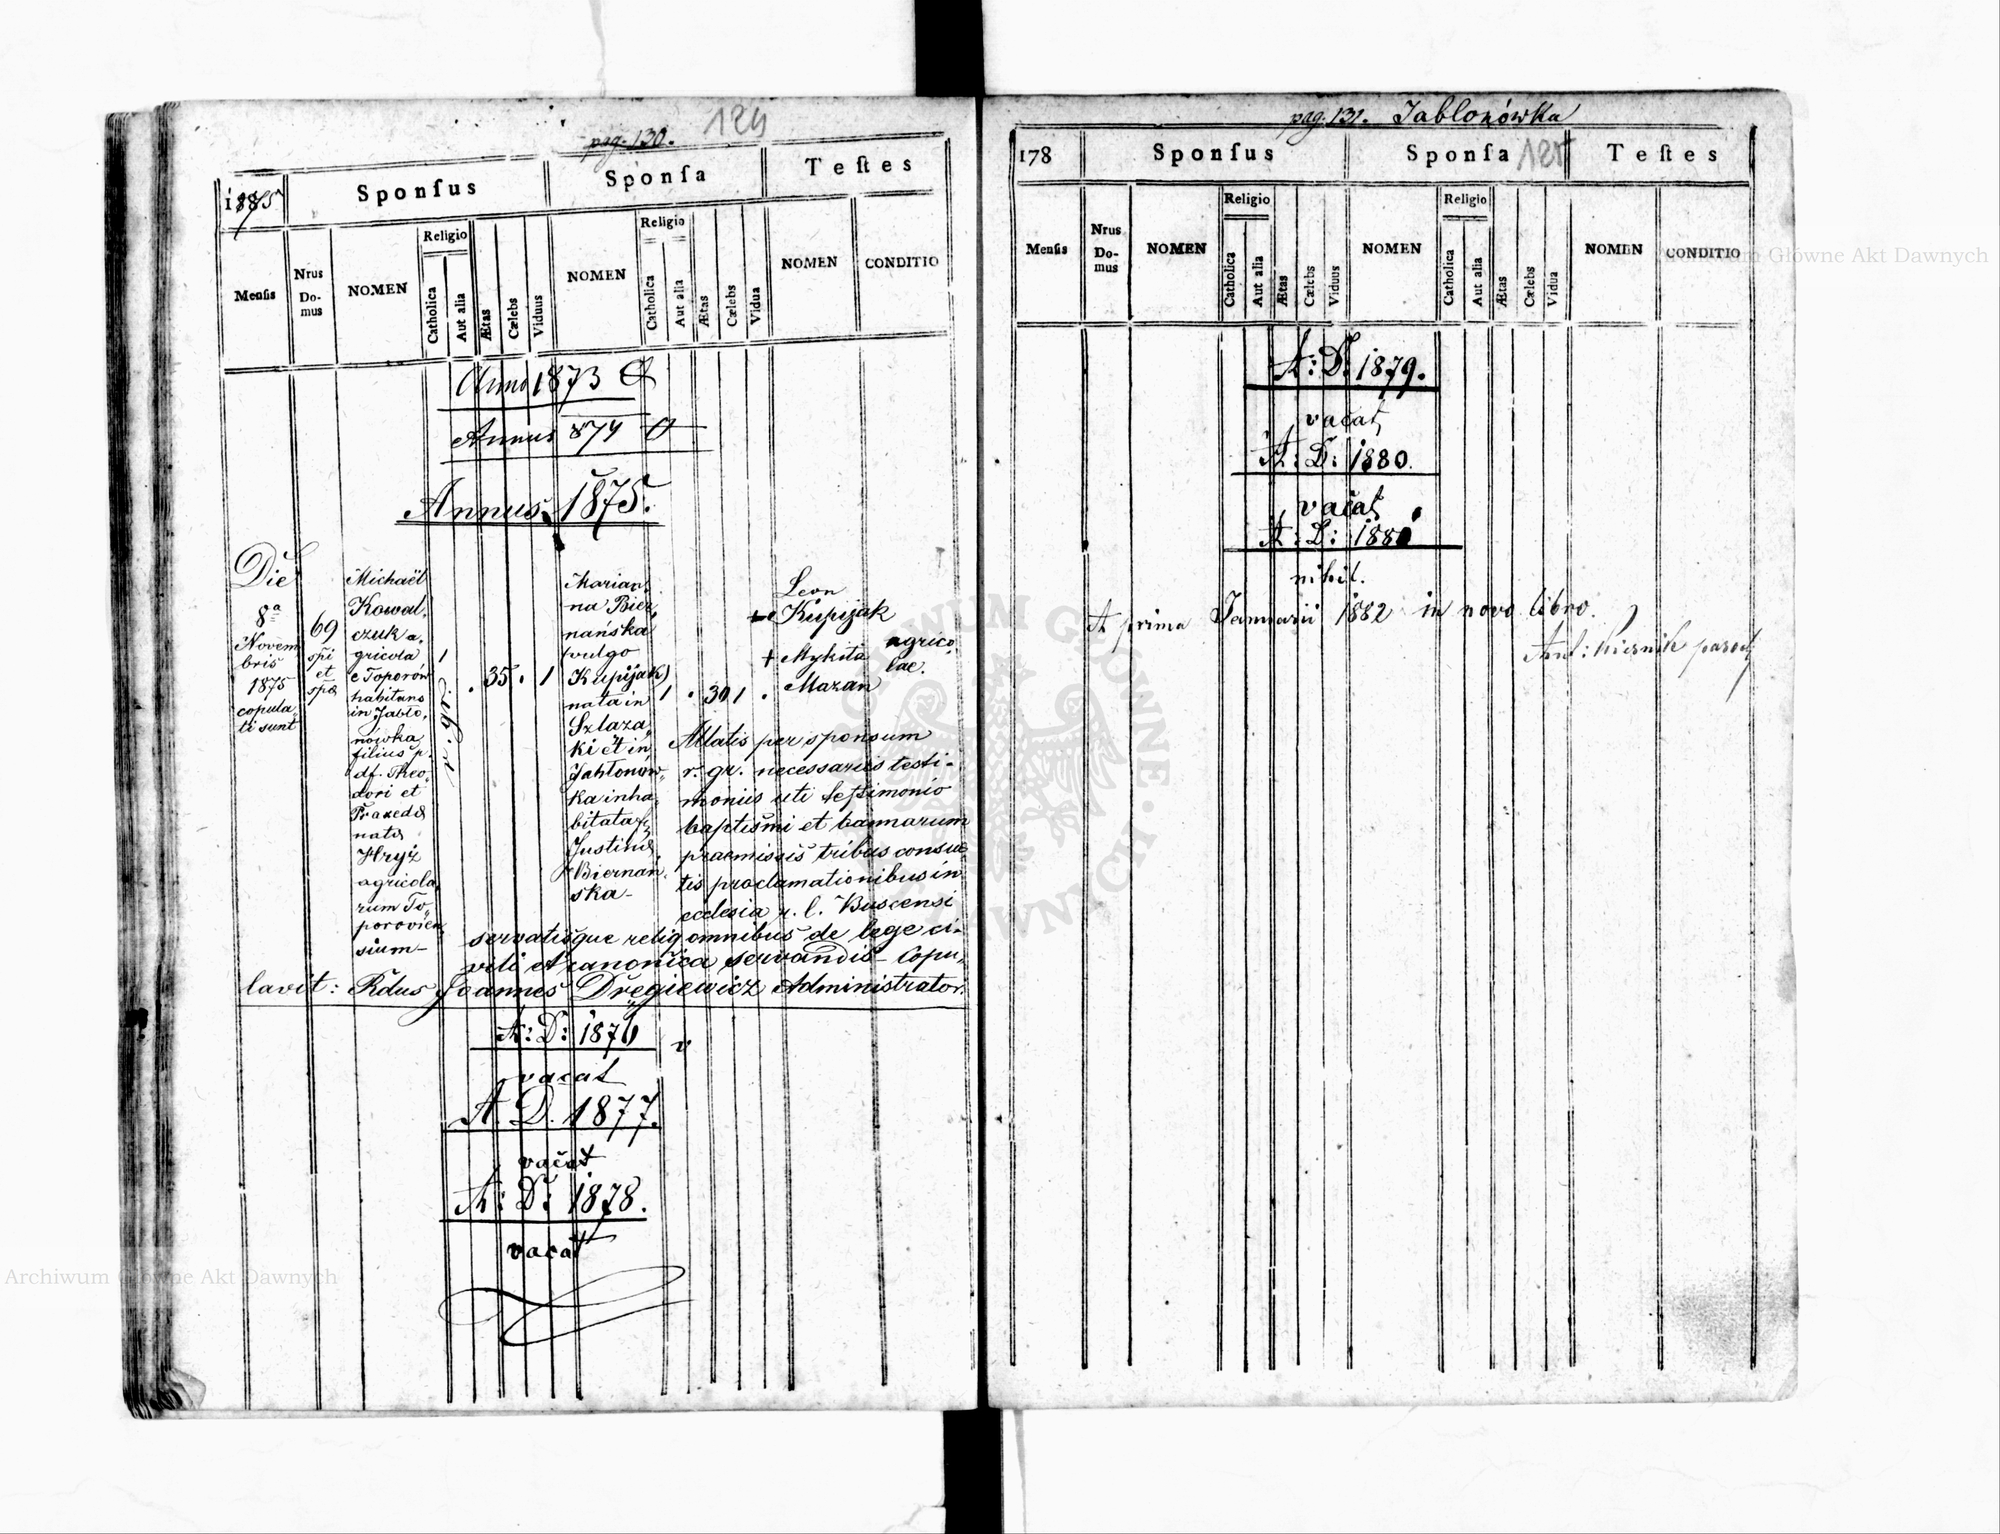 pag. 130. 124
1875 Sponſus Sponſa Teſtes
Menſis Nrus Domus NOMEN Religio Catholica Aut alia Ætas Cælebs Viduus NOMEN Religio Catholica Aut alia Ætas Cælebs Vidua NOMEN CONDITIO
Anno 1873
Annus 874
Annus 1875.
Die
8ª
Novem
bris
1875
copula
ti sunt
69
spi
et
spæ
Michaël
Kowal,
czuk a,
gricola
e Toporów
habitans
in Jabło,
nówka
filius p.
df. Theo,
dori et
Praxedæ
natæ
Hryż
agricola,
rum To,
porovien
sium
1
r. gr.
35. 1
Marian,
na Bier,
nańska
vulgo
Kupijak)
nata in
Szlaza,
ki et in
Jabłonów,
ka inha,
bitata
Justinæ
Biernań,
ska
1 . 30 1 .
Leon
+ Kupijak
+ Mykita
Mazan
agrico,
lae.
Allatis per sponsum
r. gr. necessariis testi-
moniis uti testimonio
baptismi et bannarum
praemissis tribus consue,
tis proclamationibus in
ecclesia r. l. Buscensi
servatisque reliq omnibus de lege ci-
vili et canonica servandis Copu,
lavit: Rdus Joannes Dręgiewicz Administrator.
A: D: 1876
vacat
A. D. 1877.
vacat
A: D: 1878.
vacat
pag. 131. Jabłonówka
178 Sponſus Sponſa 125 Teſtes
Menſis Nrus Domus NOMEN Religio Catholica Aut alia Ætas Cælebs Viduus NOMEN Religio Catholica Aut alia Ætas Cælebs Vidua NOMEN CONDITIO
A: D. 1879.
vacat
A: D: 1880.
vacat
A: D: 1881
nihil.
A prima Januarii 1882 in novo libro.
Ant: Kiernik
Archiwum Główne Akt Dawnych
Archiwum Główne Akt Dawnych
ARCHIWUM GŁÓWNE AKT DAWNYCH